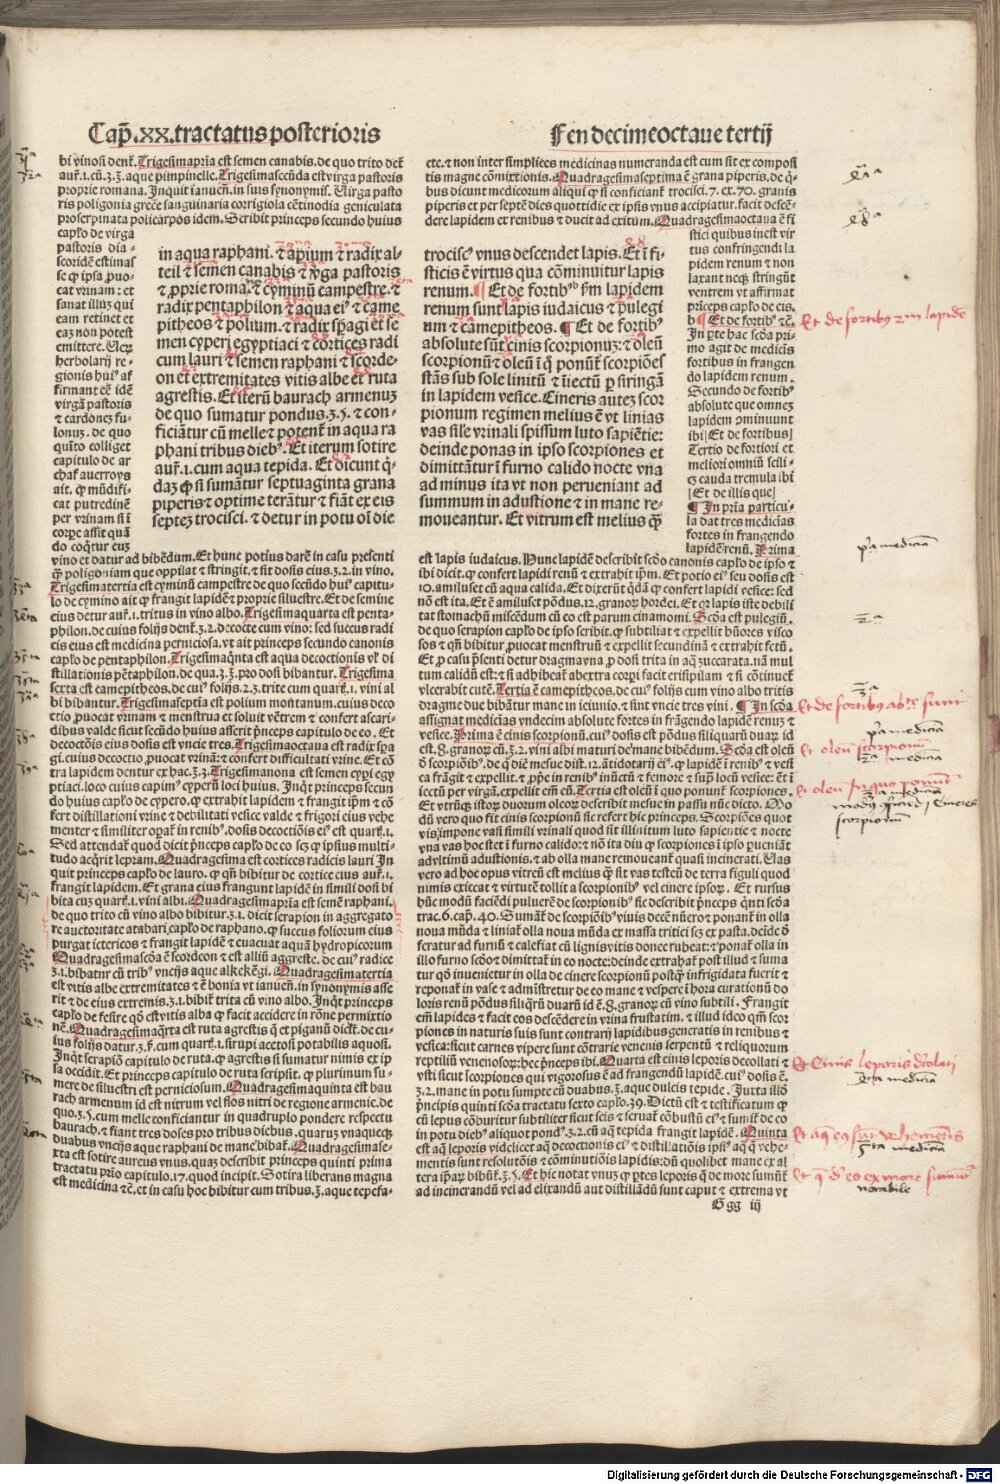 Cap̃.xx.tractatus posterioris
Fen decimeoctaue tertij
bi vinosi denť. Trigesimaprĩa est semen canabis. de quo trito deť
aur̃.1. cũ.3.ʒ. aque pimpinelle. Trigesimascc̃da est virga pastoris
proprie romana. Inquit ianueñ. in suis synonymis. Uirga pasto
ris poligonia grece sanguinaria corrigiola cẽtinodia geniculata
proserpinata policarpos idem. Scribit princeps secundo huius
cap̃lo de virga
pastoris dia-
scoridẽ estimas
se ꝙ ipsa ꝓuo-
cat vrinam: et
sanat illuz qui
eam retinet et
eaz non potest
emittere. Ueꝝ
herbolarij re-
gionis huiꝰ af
firmant eẽ idẽ
virgã pastoris
⁊ cardonez fu-
lonuz. de quo
quĩto colliget
capitulo de ar
chaf auerroys
ait. ꝙ mũdifi-
cat putredinẽ
per vrinam si ĩ
corpe assit quã
do coq̃tur euz
in aqua raphani. ⁊ apium ⁊ radix al-
teil ⁊ semen canabis ⁊ ỹga pastoris
⁊ ꝓprie roma. ⁊ cyminũ campestre. ⁊
radix pentaphilon ⁊ aqua eiꝰ ⁊ came
pitheos ⁊ polium. ⁊ radix sp̃agi et se
men cyperi egyptiaci ⁊ cortices radi
cum lauri ⁊ semen raphani ⁊ scorde-
on et extremitates vitis albe et ruta
agrestis. Et iteꝝ baurach armenuz
de quo sumatur pondus.ʒ.5. ⁊ con-
ficiãtur cũ melle ⁊ potenť in aqua ra
phani tribus diebꝰ. Et iterum sotire
aur̃.1. cum aqua tepida. Et dicunt q̃-
daz ꝙ si sumãtur septuaginta grana
piperis ⁊ optime terãtur ⁊ fiãt ex eis
septez trocisci. ⁊ detur in potu oĩ die
vino et datur ad bibẽdum. Et hunc potius darẽ in casu presenti
ꝙ poligoniam que oppilat ⁊ stringit. ⁊ sit dosis eius.ʒ.2. in vino.
Trigesimatertia est cyminũ campestre de quo secũdo huiꝰ capitu-
lo de cymino ait ꝙ frangit lapidẽ ⁊ proprie siluestre. Et de semine
eius detur aur̃.1. tritus in vino albo. Trigesimaquarta est penta-
philon. de cuius folijs denť.ʒ.2. decocte cum vino: sed succus radi
cis eius est medicina perniciosa. vt ait princeps secundo canonis
cap̃lo de pentaphilon. Trigesimaq̃nta est aqua decoctionis vł di
stillationis pẽtaphilon. de qua.ʒ.3. pro dosi bibantur. Trigesima
sexta est camepitheos. de cuiꝰ folijs.2.ʒ. trite cum quarť.1. vini al
bi bibantur. Trigesimaseptĩa est polium montanum. cuius deco
ctio ꝓuocat vrinam ⁊ menstrua et soluit vẽtrem ⁊ confert ascari-
dibus valde sicut secũdo huius asserit p̃nceps capitulo de eo. Et
decoctõis eius dosis est vncie tres. Trigesimaoctaua est radix sp̃a
gi. cuius decoctio ꝓuocat vrinã: ⁊ confert difficultati vrine. Et cõ
tra lapidem dentur ex hac.ʒ.3. Trigesimanona est semen cypi egy
ptiaci. loco cuius capimꝰ cyperũ loci huius. Inq̃t princeps secun
do huius cap̃lo de cypero. ꝙ extrahit lapidem ⁊ frangit ip̃m ⁊ cõ
fert distillationi vrine ⁊ debilitati vesice valde ⁊ frigori eius vehe
menter ⁊ similiter oꝑať in renibꝰ. dosis decoctiõis eiꝰ est quarť.1.
Sed attendať quod dicit p̃nceps cap̃lo de eo scz ꝙ ipsius multi-
tudo acq̃rit lepram. Quadragesima est cortices radicis lauri In
quit princeps cap̃lo de lauro. ꝙ qñ bibitur de cortice eius aur̃.1.
frangit lapidem. Et grana eius frangunt lapidẽ in simili dosi bi
bita cuz quarť.1. vini albi. Quadragesimaprĩa est semẽ raphani.
de quo trito cũ vino albo bibitur.ʒ.1. dicit serapion in aggregato
re auctoritate atabari. cap̃lo de raphano. ꝙ succus foliorum eius
purgat ictericos ⁊ frangit lapidẽ ⁊ euacuat aquã hydropicorum
Quadragesimascõa ẽ scordeon ⁊ est alliũ aggreste. de cuiꝰ radice
ʒ.1. bibatur cũ tribꝰ vncijs aque alkekẽgi. Quadragesimatertia
est vitis albe extremitates ⁊ ẽ bonia vt ianueñ. in synonymis asse
rit ⁊ de eius extremis.ʒ.1. bibiť trita cũ vino albo. Inq̃t princeps
cap̃lo de fesire qõ est vitis alba ꝙ facit accidere in rõne permixtio
nẽ. Quadragesimaq̃rta est ruta agrestis q̃ et piganũ dicť. de cu-
ius folijs datur.ʒ.ỹ. cum quarť.1. sirupi acetosi potabilis aquosi.
Inq̃t serapiõ capitulo de ruta. ꝙ agrestis si sumatur nimis ex ip
sa occidit. Et princeps capitulo de ruta scripsit. ꝙ plurimum su-
mere de siluestri est perniciosum. Quadragesimaquinta est bau
rach armenum id est nitrum vel flos nitri de regione armenie. de
quo.ʒ.5. cum melle conficiantur in quadruplo pondere respectu
baurach. ⁊ fiant tres doses pro tribus diebus. quaruz vnaquecꝫ
duabus vncijs aque raphani de mane bibať. Quadragesimase-
xta est sotire aureus vnus. quaz describit princeps quinti prima
tractatu prio capitulo.17. quod incipit. Sotira liberans magna
est medicina ⁊č. et in casu hoc bibitur cum tribus.ʒ. aque tepefa-
cte. ⁊ non inter simplices medicinas numeranda est cum sit ex composi
tis magne cõmixtionis. Quadragesimaseptima ẽ grana piperis. de q̃-
bus dicunt medicorum aliqui ꝙ si conficianť trocisci.7. ex.70. granis
piperis et per septẽ dies quottidie ex ipsis vnus accipiatur. facit descẽ-
dere lapidem ex renibus ⁊ ducit ad exitum. Quadragesimaoctaua ẽ fi
stici quibus inest vir
tus confringendi la
pidem renum ⁊ non
laxant necꝫ stringũt
ventrem vt affirmat
prĩceps cap̃lo de eis.
b ¶ Et de fortibꝰ ⁊č.
In p̃te hac scõa pri-
mo agit de medicĩs
fortibus in frangen
do lapidem renum.
Secundo de fortibꝰ
absolute que omnez
lapidem ꝯminuunt
ibi[Et de fortibus]
Tertio de fortiori et
meliori omniũ scili-
cꝫ cauda tremula ibi
[Et de illis que]
¶ In prĩa particu-
la dat tres medicĩas
fortes in frangendo
lapidẽ renũ. Prima
trociscꝰ vnus descendet lapis. Et ĩ fi-
sticis ẽ virtus qua cõminuitur lapis
renum. ¶ Et de fortibꝰ ꝓm lapidem
renum sunt lapis iudaicus ⁊ pulegi
um ⁊ camepitheos. ¶ Et de fortibꝰ
absolute sũt cinis scorpionuz: ⁊ oleũ
scorpionũ ⁊ oleũ ĩ q̃ ponũť scorpiões
stãs sub sole linitũ ⁊ iiectũ ꝑ siringã
in lapidem vesice. Cineris autez scor
pionum regimen melius ẽ vt linias
vas sile vrinali spissum luto sapiẽtie:
deinde ponas in ipso scorpiones et
dimittãtur ĩ furno calido nocte vna
ad minus ita vt non perueniant ad
summum in adustione ⁊ in mane re-
moueantur. Et vitrum est melius ꝙ̃
est lapis iudaicus. Nunc lapidẽ describit scõo canonis cap̃lo de ipso ⁊
ibi dicit. ꝙ confert lapidi renũ ⁊ extrahit ip̃m. Et potio eiꝰ seu dosis est
10. amiluset cũ aqua calida. Et dixerũt q̃dã ꝙ confert lapidi vesice: sed
nõ est ita. Et ẽ amiluset põdus.12. granoꝝ hordei. Et qꝛ lapis iste debili
tat stomachũ miscẽdum cũ eo est parum cinamomi. Scõa est pulegiũ.
de quo serapion cap̃lo de ipso scribit. ꝙ subtiliat ⁊ expellit hũores visco
sos ⁊ qñ bibitur ꝓuocat menstruũ ⁊ expellit secundinã ⁊ extrahit fetũ.
Et ꝓ casu p̃senti detur dragma vna ꝓ dosi trita in aq̃ zuccarata. nã mul
tum calidũ est: ⁊ si adhibeať abextra corpi facit erisipilam ⁊ si cõtinueť
vlcerabit cutẽ. Tertia ẽ camepitheos. de cuiꝰ folijs cum vino albo tritis
dragme due bibãtur mane in ieiunio. ⁊ sint vncie tres vini. ¶ In scõa
assignat medicĩas vndecim absolute fortes in frãgẽdo lapidẽ renuz ⁊
vesice. Prima ẽ cinis scorpionũ. cuiꝰ dosis est põdus siliquarũ duaꝝ id
est.8. granoꝝ cũ.ʒ.2. vini albi maturi de mane bibẽdum. Scõa est oleũ
d̃ scorpiõibꝰ. de q̃ diẽ mesue dist.12. ãtidotarij eiꝰ. ꝙ lapidẽ ĩ renibꝰ ⁊ vesi
ca frãgit ⁊ expellit. ⁊ ꝓp̃e in renibꝰ inũctũ ⁊ femore ⁊ sup̃ locũ vesice: ẽt ĩ
iectũ per virgã. expellit em̃ eũ. Tertia est oleũ ĩ quo ponunť scorpiones.
Et vtrũcꝫ istoꝝ duorum oleoꝝ describit mesue in passu nũc dicto. Mo
dũ vero quo fit cinis scorpionũ sic refert hic princeps. Scorpiões quot
vis ĩmpone vasi simili vrinali quod sit illinitum luto sapientie ⁊ nocte
vna vas hoc stet ĩ furno calido: ⁊ nõ ita diu ꝙ scorpiones ĩ ipso ꝑueniãt
advltimũ adustionis. ⁊ ab olla mane remoueanť quasi incinerati. Uas
vero ad hoc opus vitreũ est melius ꝙ̃ sit vas testeũ de terra figuli quod
nimis exiccat ⁊ virtutẽ tollit a scorpionibꝰ vel cinere ipsoꝝ. Et rursus
hũc modũ faciẽdi puluerẽ de scorpionibꝰ sic describit p̃nceps q̃nti scõa
trac.6. cap̃.40. Sumãť de scorpiõibꝰ viuis decẽ nũero ⁊ ponanť in olla
noua mũda ⁊ liniať olla noua mũda ex massa tritici scꝫ ex pasta. deide õ
feratur ad furnũ ⁊ calefiat cũ lignis vitis donec rubeat: ⁊ ponať olla in
illo furno scõo ⁊ dimittať in eo nocte: deinde extrahať post illud ⁊ suma
tur qõ inuenietur in olla de cinere scorpionũ postq̃ infrigidata fuerit ⁊
reponať in vase ⁊ admĩstretur de eo mane ⁊ vespere ĩ hora curationũ do
loris renũ põdus siliq̃rũ duarũ id ẽ.8. granoꝝ cũ vino subtili. Frangit
em̃ lapides ⁊ facit eos descẽdere in vrina frustatim. ⁊ illud ideo qm̃ scor
piones in naturis suis sunt contrarij lapidibus generatis in renibus ⁊
vesica: sicut carnes vipere sunt cõtrarie venenis serpentũ ⁊ reliquorum
reptiliũ venenosoꝝ: hec p̃nceps ibi. Quarta est cinis leporis decollati ⁊
vsti sicut scorpiones qui vigorosus ẽ ad frangendũ lapidẽ. cuiꝰ dosis ẽ
ʒ.2. mane in potu sumpte cũ duabus.ʒ. aque dulcis tepide. Juxta illd
p̃ncipis quinti scõa tractatu sexto cap̃lo.39. Dictũ est ⁊ testificatum ꝙ
cũ lepus cõburitur subtiliter sicut fuit ⁊ seruať cõbustũ eiꝰ ⁊ sumiť de eo
in potu diebꝰ aliquot pondꝰ.ʒ.2. cũ aq̃ tepida frangit lapidẽ. Quinta
est aq̃ leporis videlicet aq̃ decoctionis eiꝰ ⁊ distillatiõis ipsiꝰ aq̃ q̃ vehe-
mentis sunt resolutõis ⁊ cõminutiõis lapidis: dũ quolibet mane ex al
tera ip̃aꝝ bibũť.ʒ.5. Et hic notat vnuz ꝙ p̃tes leporis q̃ de more sumũť
ad incinerandũ vel ad elixandũ aut distillãdũ sunt caput ⁊ extrema vt
Ggg iij
Et de fortibus ꝓm lapidẽ
p̃a medicĩa
2ᵃ
3ᵃ
Et de fortibus absᵗᵉ sunt
p̃a medicĩa
Et oleũ scorpionũ
2ᵃ medicĩa
Et oleũ in quo ponunť
3ᵃ medicĩa
modus cineres
scorpionũ
Et Cinis leporis dcõlati
4ta medicĩa
Et aq̃ eꝰ sũt vehemẽtis
5ta medicĩa
notabile
Digitalisierung gefördert durch die Deutsche Forschungsgemeinschaft - DFG